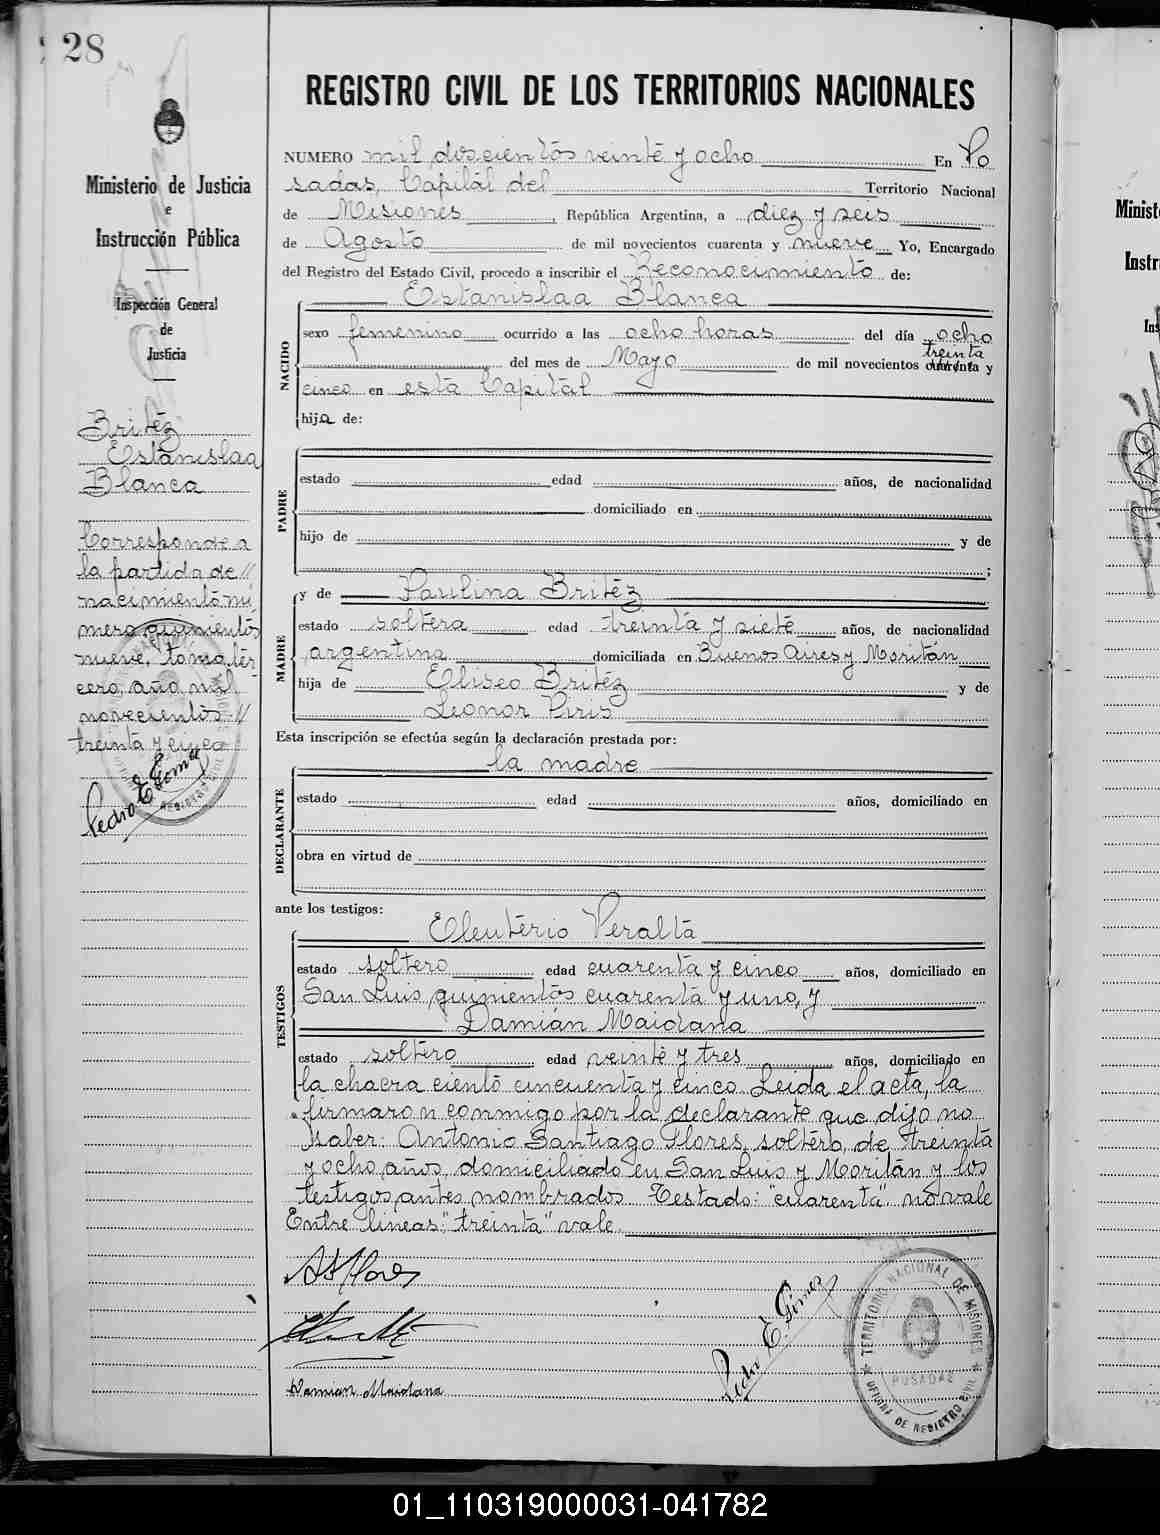 28
Ministerio de Justicia
e
Instrucción Pública
Inspección General
de
Justicia
Britéz
Estanislaa
Blanca
Corresponde a
la partida de //
nacimiento nú
mero quinientos
nueve, tomo ter
cero, año mil
novecientos //
treinta y cinco
Pedro E. Gomez
REGISTRO CIVIL DE LOS TERRITORIOS NACIONALES
NUMERO mil doscientos veinte y ocho En Po
sadas, Capital del Territorio Nacional
de Misiones, República Argentina, a diez y seis
de Agosto de mil novecientos cuarenta y nueve Yo, Encargado
del Registro del Estado Civil, procedo a inscribir el Reconocimiento de:
Estanislaa Blanca
NACIDO
sexo femenino ocurrido a las ocho horas del día ocho
treinta
del mes de Mayo de mil novecientos cuarenta y
cinco en esta Capital
hija de:
PADRE
estado edad años, de nacionalidad
domiciliado en
hijo de y de
;
MADRE
y de Paulina Britéz
estado soltera edad treinta y siete años, de nacionalidad
argentina domiciliada en Buenos Aires y Moritán
hija de Eliseo Britéz y de
Leonor Piris
Esta inscripción se efectúa según la declaración prestada por:
la madre
DECLARANTE
estado edad años, domiciliado en
obra en virtud de
ante los testigos:
Eleuterio Peralta
TESTIGOS
estado soltero edad cuarenta y cinco años, domiciliado en
San Luis quinientos cuarenta y uno, y
Damián Maidana
estado soltero edad veinte y tres años, domiciliado en
la chacra ciento cincuenta y cinco. Leida el acta, la
firmaron conmigo por la declarante que dijo no
saber: Antonio Santiago Flores, soltero, de treinta
y ocho años, domiciliado en San Luis y Moritán y los
testigos antes nombrados. Testado: "cuarenta" no vale
Entre lineas: "treinta" vale.
A S Flores
Damian Maidana
Pedro E. Gomez
TERRITORIO NACIONAL DE MISIONES
POSADAS
OFICINA DE REGISTRO CIVIL
Minist
Instr
Ins
01_110319000031-041782